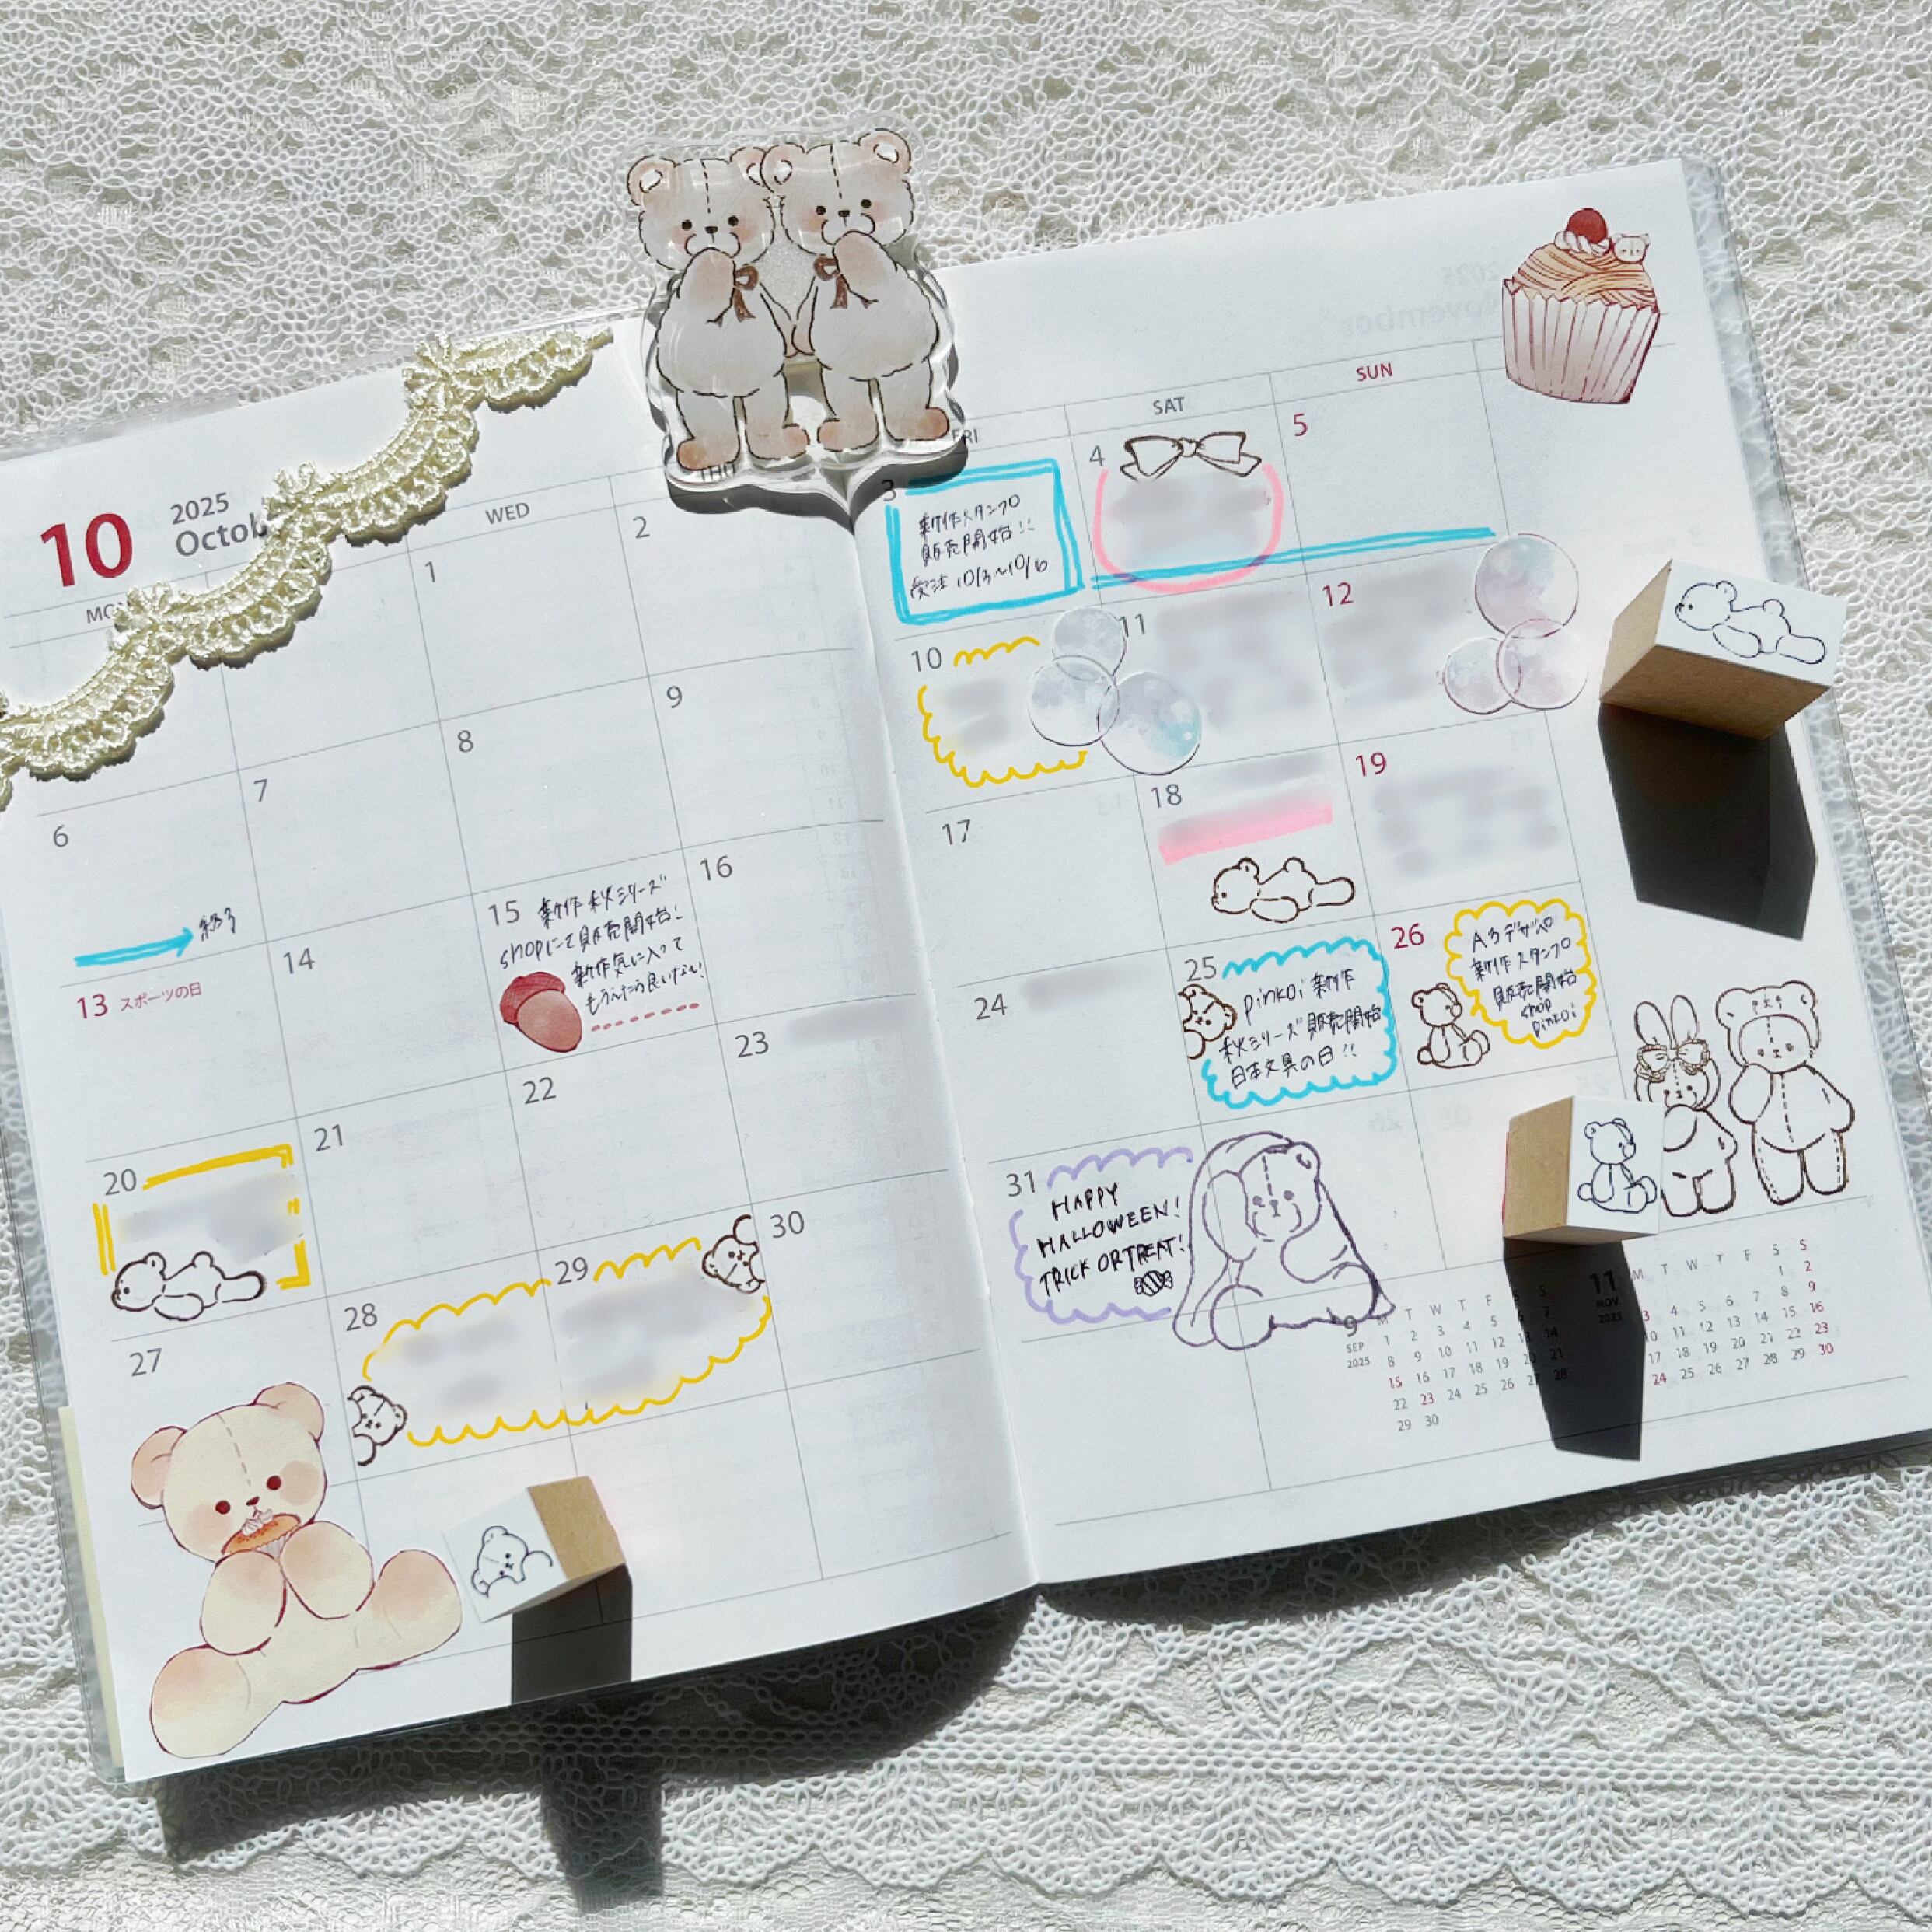 10
2025
October
MON
WED
THU
FRI
SAT
SUN
1
2
3
新作スタンプ
販売開始!!
受注 10/3〜10/6
4
5
6
終了
7
8
9
10
11
12
13 スポーツの日
14
15 新作 秋シリーズ
shopにて販売開始!
新作気に入って
もらえたら良いなぁ!
16
17
18
19
20
21
22
23
24
25
pinkoi 新作
秋シリーズ販売開始
日本文具の日!!
26
A3デザペ
新作スタンプ
販売開始
shop
pinkoi
27
28
29
30
31
HAPPY
HALLOWEEN!
TRICK OR TREAT!
9
SEP
2025
M T W T F S S
1 2 3 4 5 6 7
8 9 10 11 12 13 14
15 16 17 18 19 20 21
22 23 24 25 26 27 28
29 30
11
NOV
2025
M T W T F S S
1 2
3 4 5 6 7 8 9
10 11 12 13 14 15 16
17 18 19 20 21 22 23
24 25 26 27 28 29 30